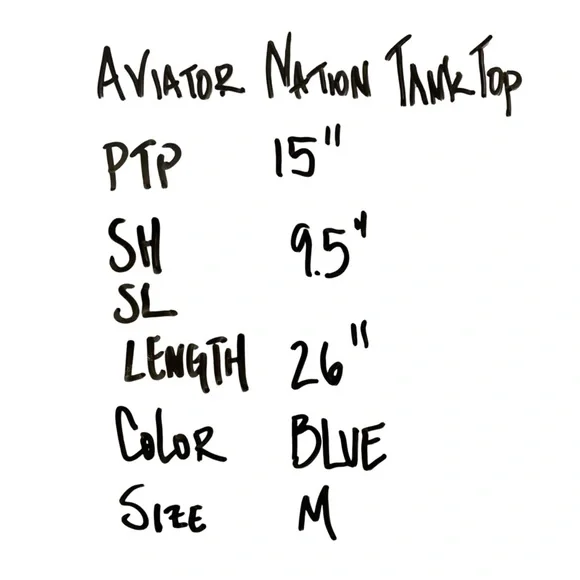 AVIATOR NATION TANK TOP
PTP 15"
SH 9.5"
SL
LENGTH 26"
COLOR BLUE
SIZE M